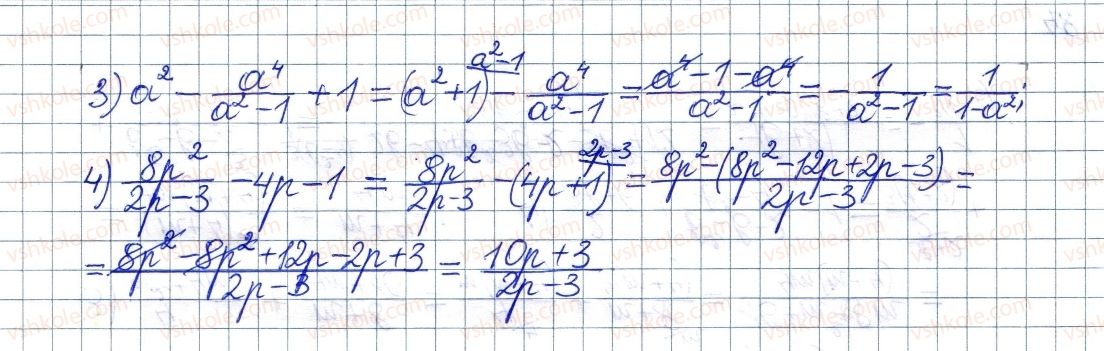 3) a² - a⁴/(a²-1) + 1 = (a²+1)^(a²-1) - a⁴/(a²-1) = (a⁴-1-a⁴)/(a²-1) = -1/(a²-1) = 1/(1-a²);
4) 8p²/(2p-3) - 4p - 1 = 8p²/(2p-3) - (4p+1)^(2p-3) = (8p²-(8p²-12p+2p-3))/(2p-3) =
= (8p²-8p²+12p-2p+3)/(2p-3) = (10p+3)/(2p-3)